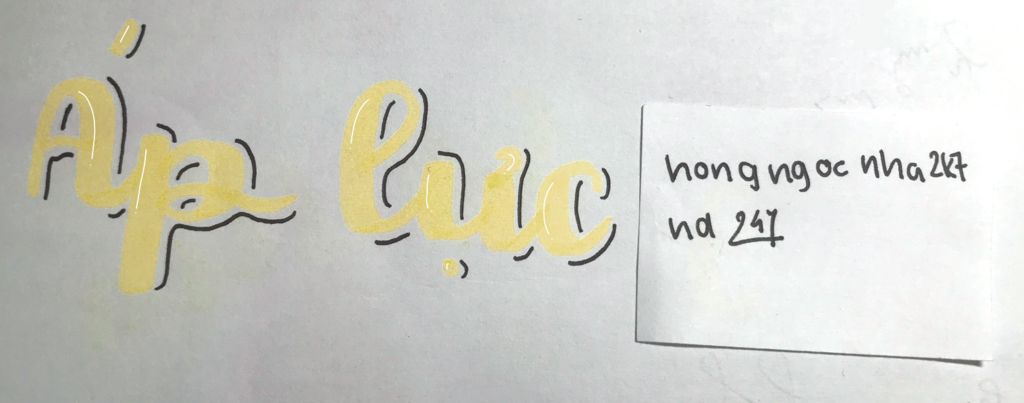 Áp lực
hong ngoc nha 2k7
nd 247